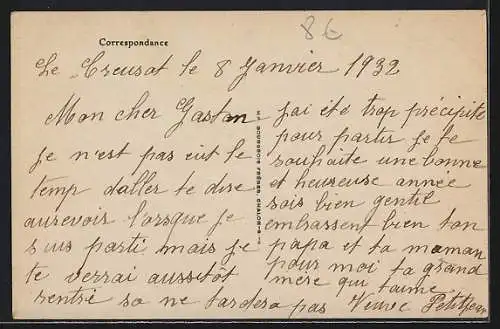 8€
Correspondance
Le Creusot le 8 Janvier 1932
Mon cher Gaston
je n'est pas eut le
temp d'aller te dire
aurevoir lorsque je
suis parti mais je
te verrai aussitôt
rentré sa ne tardera pas
jai été trop précipité
pour partir je te
souhaite une bonne
et heureuse année
sois bien gentil
embrassent bien ton
papa et ta maman
pour moi ta grand
mère qui t'aime
Veuve Petitjean